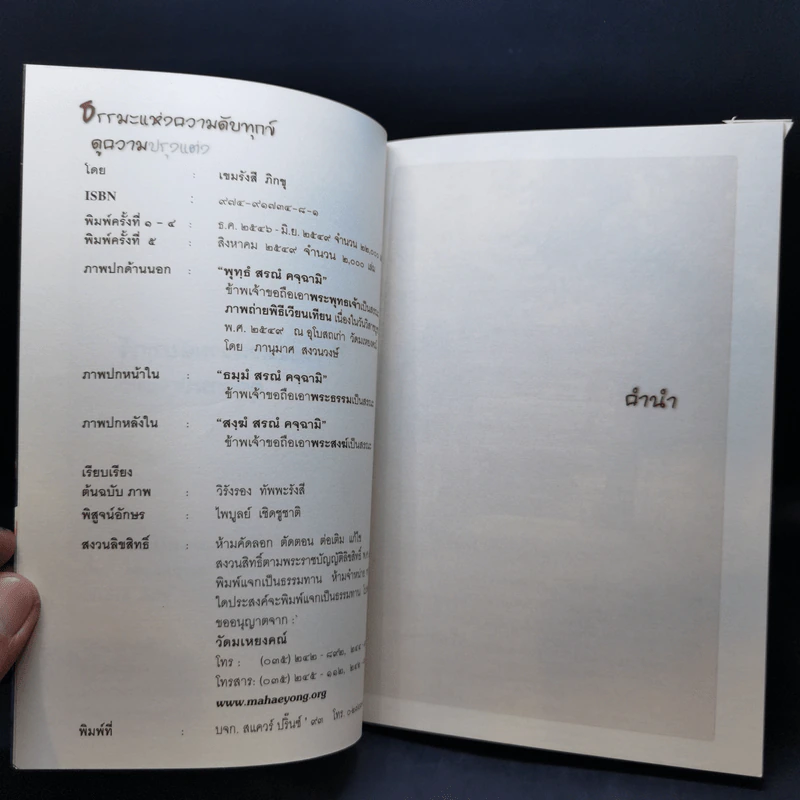 ธรรมะแห่งความดับทุกข์
ดูความปรุงแต่ง
โดย : เขมรังสี ภิกขุ
ISBN : ๙๗๔-๙๑๗๓๔-๘-๑
พิมพ์ครั้งที่ ๑ - ๔ : ธ.ค. ๒๕๔๖ - มิ.ย. ๒๕๔๙ จำนวน ๒๒,๐๐๐
พิมพ์ครั้งที่ ๕ : สิงหาคม ๒๕๔๙ จำนวน ๒,๐๐๐ เล่ม
ภาพปกด้านนอก : "พุทฺธํ สรณํ คจฺฉามิ"
ข้าพเจ้าขอถือเอาพระพุทธเจ้าเป็นสรณะ
ภาพถ่ายพิธีเวียนเทียน เนื่องในวันวิสาขบูชา
พ.ศ. ๒๕๔๙ ณ อุโบสถเก่า วัดมเหยงคณ์
โดย ภานุมาศ สงวนวงษ์
ภาพปกหน้าใน : "ธมฺมํ สรณํ คจฺฉามิ"
ข้าพเจ้าขอถือเอาพระธรรมเป็นสรณะ
ภาพปกหลังใน : "สงฺฆํ สรณํ คจฺฉามิ"
ข้าพเจ้าขอถือเอาพระสงฆ์เป็นสรณะ
เรียบเรียง
ต้นฉบับ ภาพ : วิรังรอง ทัพพะรังสี
พิสูจน์อักษร : ไพบูลย์ เชิดชูชาติ
สงวนลิขสิทธิ์ : ห้ามคัดลอก ตัดตอน ต่อเติม แก้ไข
สงวนสิทธิ์ตามพระราชบัญญัติลิขสิทธิ์
พิมพ์แจกเป็นธรรมทาน ห้ามจำหน่าย
ใดประสงค์จะพิมพ์แจกเป็นธรรมทาน
ขออนุญาตจาก :
วัดมเหยงคณ์
โทร : (๐๓๕) ๒๔๒ - ๘๙๒,
โทรสาร: (๐๓๕) ๒๔๕ - ๑๑๒,
www.mahaeyong.org
พิมพ์ที่ : บจก. สแควร์ ปริ๊นซ์ '๙๓ โทร.
คำนำ